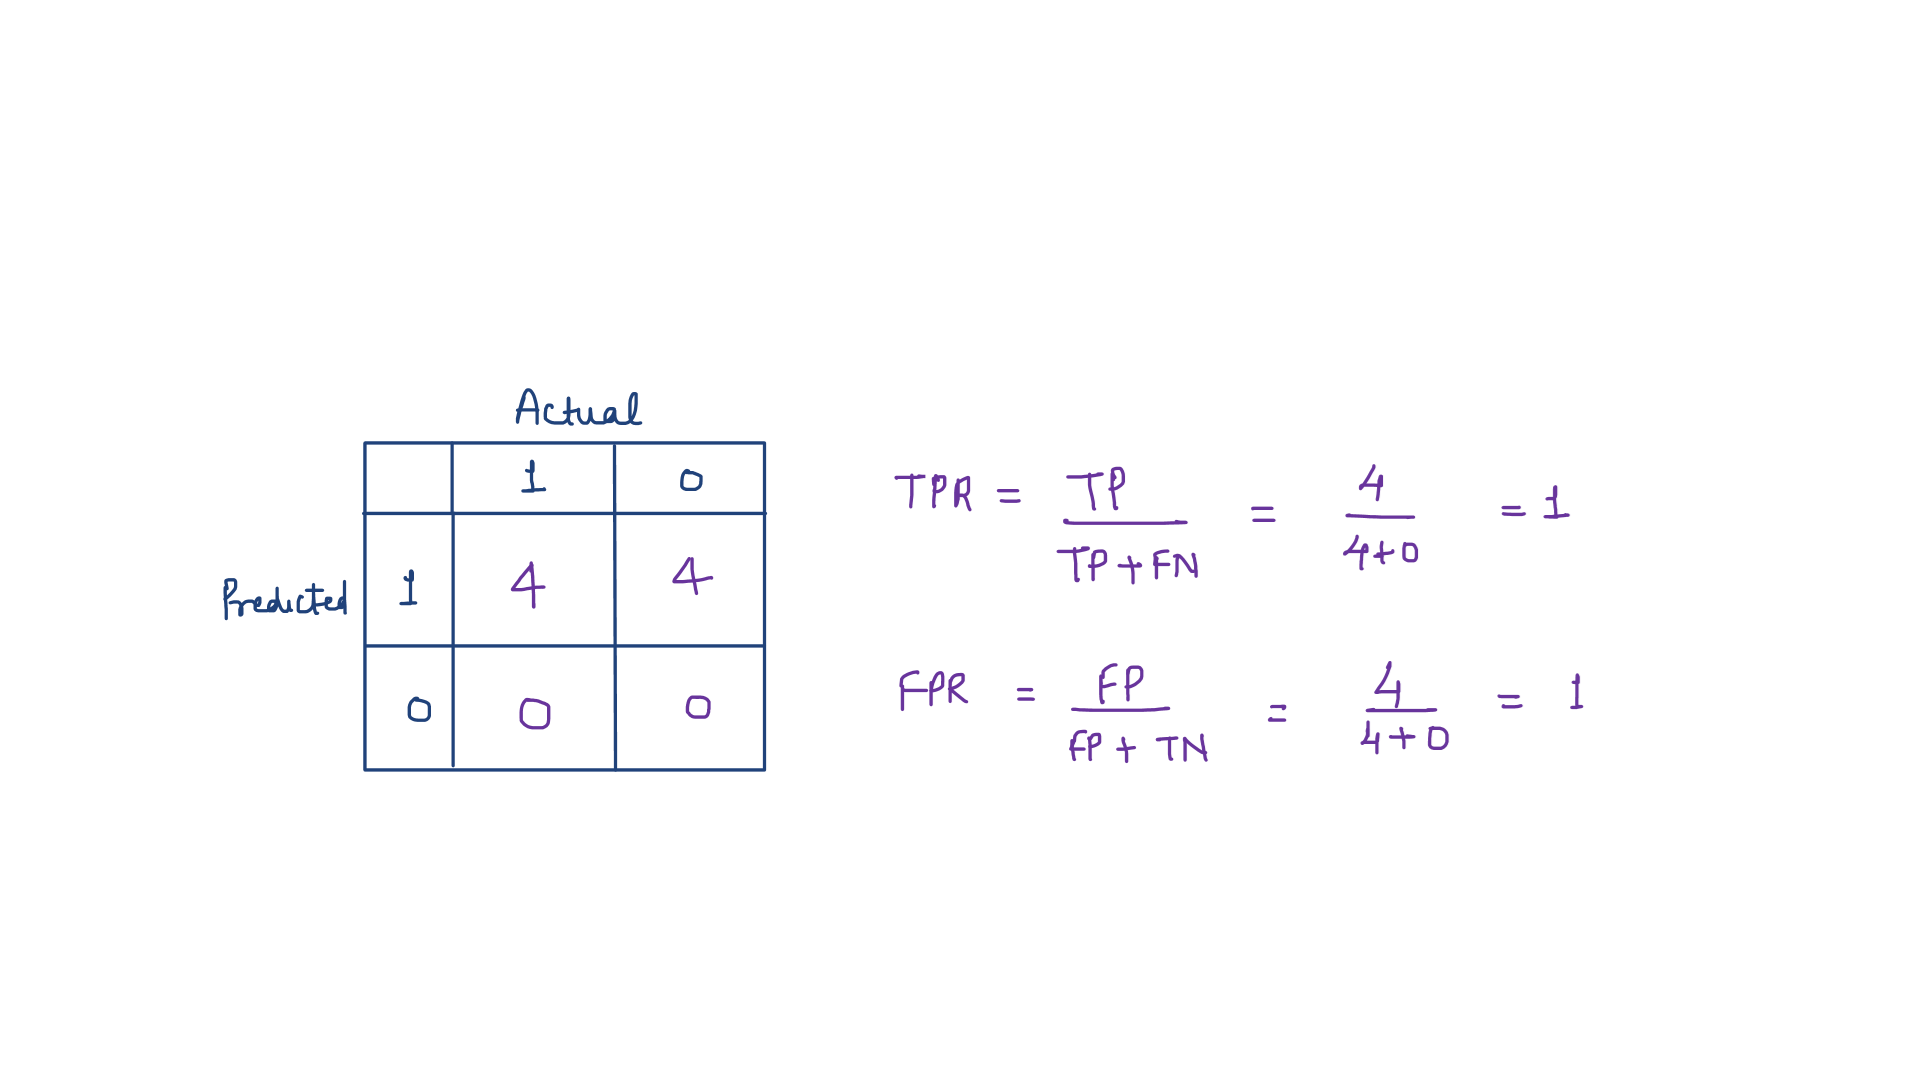 Actual
1 0
Predicted 1 4 4
0 0 0
TPR = TP / TP + FN = 4 / 4+0 = 1
FPR = FP / FP + TN = 4 / 4+0 = 1